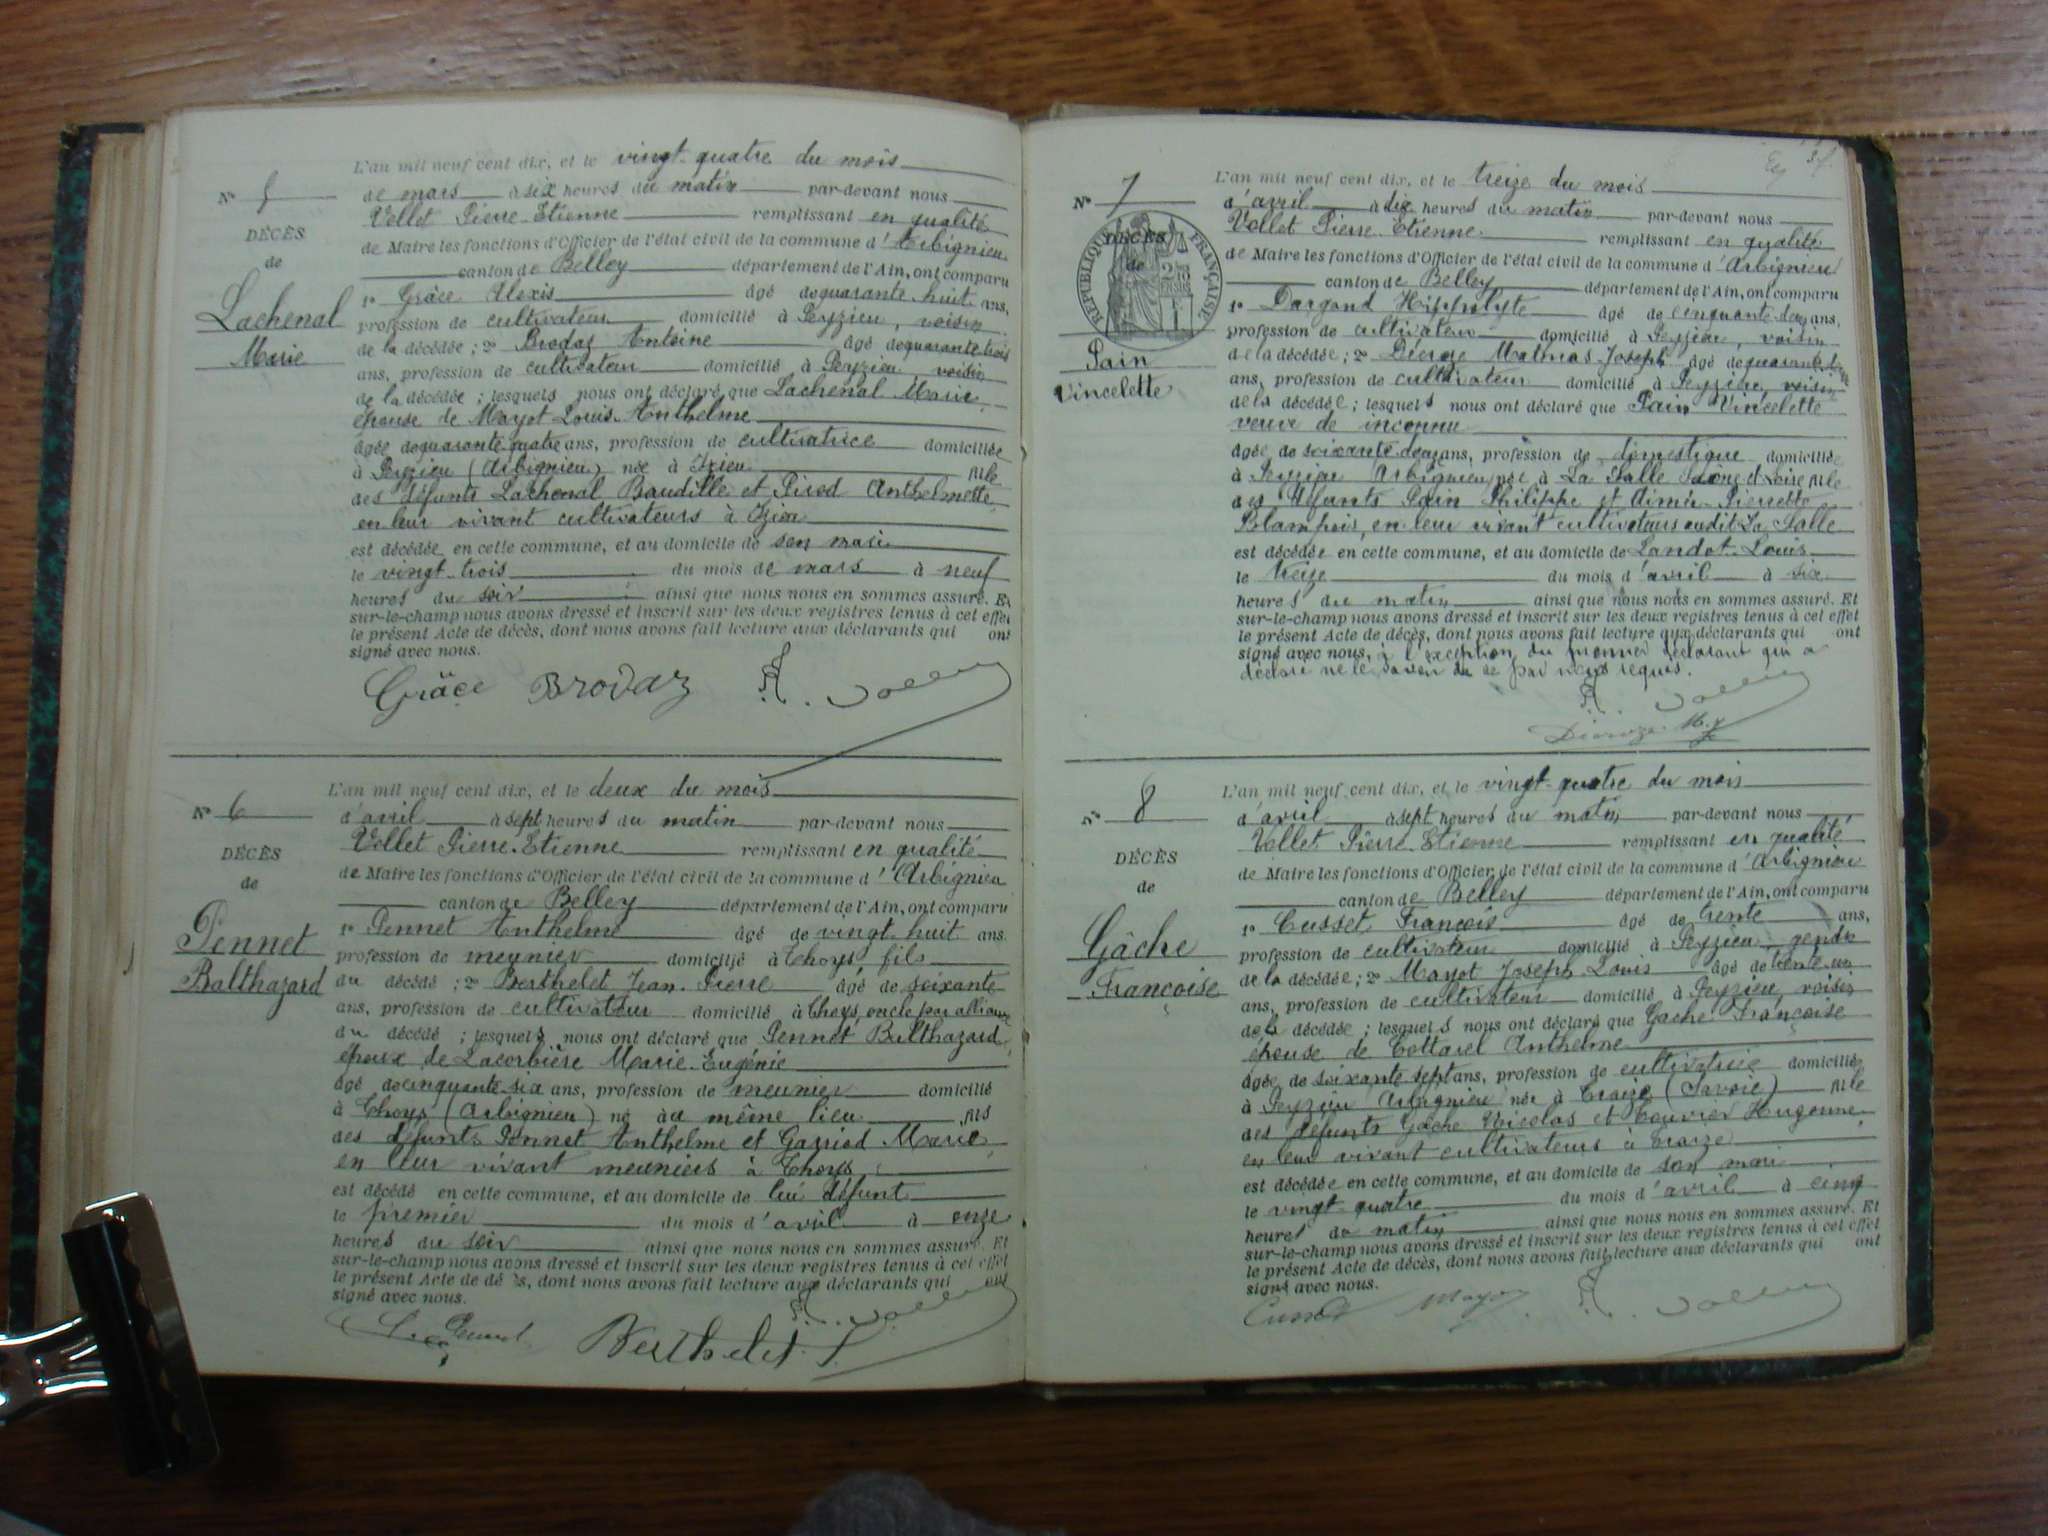 L'an mil neuf cent dix, et le vingt-quatre du mois
N° 5
de mars à six heures du matin par-devant nous
Vollet Pierre-Etienne remplissant en qualité
DÉCÈS
de Maire les fonctions d'Officier de l'état civil de la commune d'Arbignieu
de
canton de Belley département de l'Ain, ont comparu
1° Grâce Alexis âgé de quarante-huit ans,
Lachenal
profession de cultivateur domicilié à Peyzieu, voisin
Marie
de la décédée; 2° Brodaz Antoine âgé de quarante trois
ans, profession de cultivateur domicilié à Peyzieu, voisin
de la décédée; lesquels nous ont déclaré que Lachenal Marie,
épouse de Mayot Louis-Anthelme
âgée de quarante quatre ans, profession de cultivatrice domiciliée
à Peyzieu (Arbignieu) née à Izieu fille
des défunts Lachenal Baudille et Picod Anthelmette,
en leur vivant cultivateurs à Izieu
est décédée en cette commune, et au domicile de son mari
le vingt-trois du mois de mars à neuf
heures du soir ainsi que nous nous en sommes assuré. Et
sur-le-champ nous avons dressé et inscrit sur les deux registres tenus à cet effet
le présent Acte de décès, dont nous avons fait lecture aux déclarants qui ont
signé avec nous.
Grâce Brodaz Vollet
L'an mil neuf cent dix, et le deux du mois
N° 6
d'avril à sept heures du matin par-devant nous
Vollet Pierre-Etienne remplissant en qualité
DÉCÈS
de Maire les fonctions d'Officier de l'état civil de la commune d'Arbignieu
de
canton de Belley département de l'Ain, ont comparu
1° Pennet Anthelme âgé de vingt-huit ans.
Pennet
profession de meunier domicilié à Thoys, fils
Balthazard
du décédé; 2° Berthelet Jean-Pierre âgé de soixante
ans, profession de cultivateur domicilié à Thoys, oncle par alliance
du décédé; lesquels nous ont déclaré que Pennet Balthazard,
époux de Lacorbière Marie-Eugénie
âgé de cinquante-six ans, profession de meunier domicilié
à Thoys (Arbignieu) né au même lieu fils
des défunts Pennet Anthelme et Marie,
en leur vivant meuniers à Thoys
est décédé en cette commune, et au domicile de lui défunt
le premier du mois d'avril à onze
heures du soir ainsi que nous nous en sommes assuré. Et
sur-le-champ nous avons dressé et inscrit sur les deux registres tenus à cet effet
le présent Acte de décès, dont nous avons fait lecture aux déclarants qui ont
signé avec nous.
Pennet Berthelet Vollet
37
L'an mil neuf cent dix, et le treize du mois
N° 7
d'avril à dix heures du matin par-devant nous
Vollet Pierre-Etienne remplissant en qualité
RÉPUBLIQUE FRANÇAISE
DÉCÈS
de Maire les fonctions d'Officier de l'état civil de la commune d'Arbignieu
de
canton de Belley département de l'Ain, ont comparu
1° Dargond Hippolyte âgé de cinquante-deux ans,
profession de cultivateur domicilié à Peyzieu, voisin
Pain
de la décédée; 2° Joseph âgé de
Vincelette
ans, profession de cultivateur domicilié à Peyzieu, voisin
de la décédée; lesquels nous ont déclaré que Pain Vincelette
veuve de inconnu
âgée de soixante-deux ans, profession de domestique domiciliée
à Peyzieu Arbignieu née à La Salle Saône-et-Loire fille
des défunts Pain Philippe et Aimée-Pierrette
en leur vivant cultivateurs audit La Salle
est décédée en cette commune, et au domicile de Landot Louis
le treize du mois d'avril à six
heures du matin ainsi que nous nous en sommes assuré. Et
sur-le-champ nous avons dressé et inscrit sur les deux registres tenus à cet effet
le présent Acte de décès, dont nous avons fait lecture aux déclarants qui ont
signé avec nous, à l'exception du premier déclarant qui a
déclaré ne le savoir de ce par nous requis.
Vollet
L'an mil neuf cent dix, et le vingt-quatre du mois
N° 8
d'avril à sept heures du matin par-devant nous
Vollet Pierre-Etienne remplissant en qualité
DÉCÈS
de Maire les fonctions d'Officier de l'état civil de la commune d'Arbignieu
de
canton de Belley département de l'Ain, ont comparu
1° Cusset François âgé de trente ans,
Gâche
profession de cultivateur domicilié à Peyzieu gendre
Françoise
de la décédée; 2° Mayot Joseph-Louis âgé de trente un
ans, profession de cultivateur domicilié à Peyzieu, voisin
de la décédée; lesquels nous ont déclaré que Gache Françoise
épouse de Cottarel Anthelme
âgée de soixante sept ans, profession de cultivatrice domiciliée
à Peyzieu Arbignieu née à Traize (Savoie) fille
des défunts Gache Nicolas et Bouvier Hugonne
en leur vivant cultivateurs à Traize
est décédée en cette commune, et au domicile de son mari
le vingt-quatre du mois d'avril à cinq
heures du matin ainsi que nous nous en sommes assuré. Et
sur-le-champ nous avons dressé et inscrit sur les deux registres tenus à cet effet
le présent Acte de décès, dont nous avons fait lecture aux déclarants qui ont
signé avec nous.
Cusset Mayot Vollet